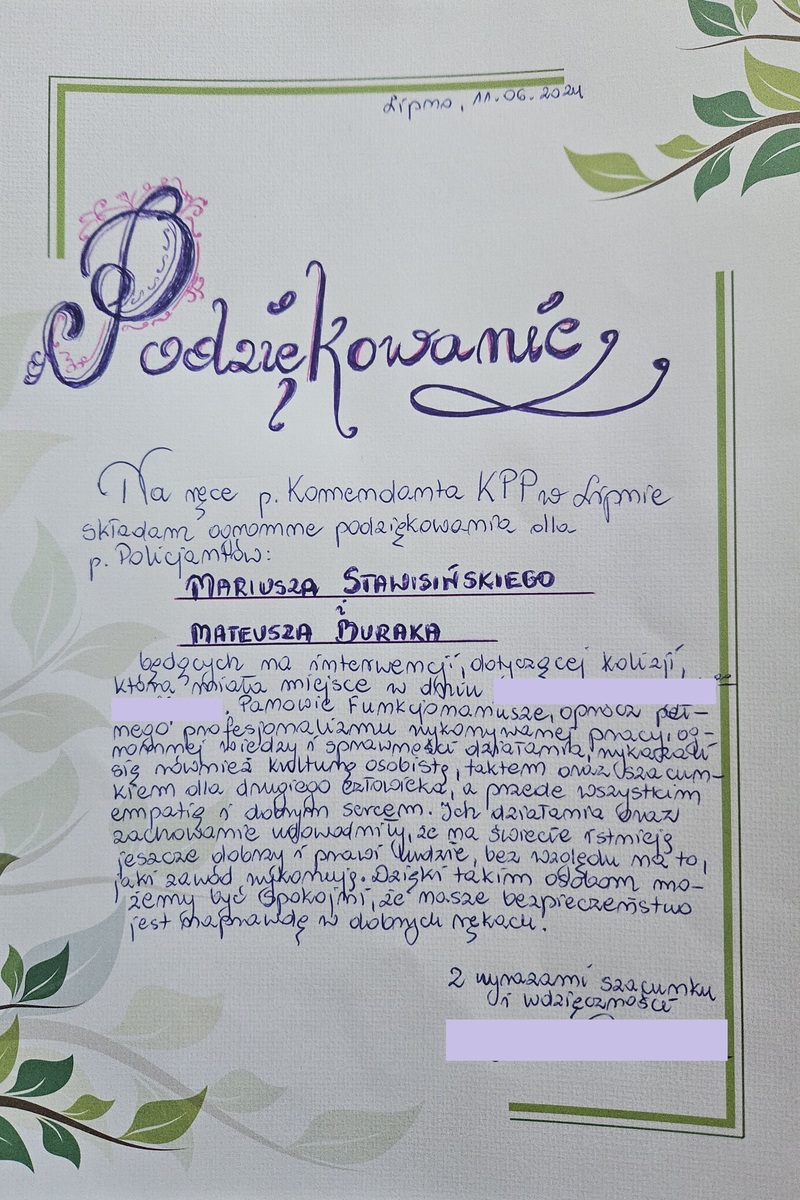 Lipno, 11.06.2024
Podziękowanie
Na ręce p. Komendanta KPP w Lipnie
składam ogromne podziękowania dla
p. Policjantów:
MARIUSZA STAWISIŃSKIEGO
i
MATEUSZA BURAKA
będących na interwencji, dotyczącej kolizji,
która miała miejsce w dniu
. Panowie Funkcjonariusze, oprócz peł-
nego profesjonalizmu wykonywanej pracy, og-
romnej wiedzy i sprawności działania, wykazali
się również kulturą osobistą, taktem oraz szacun-
kiem dla drugiego człowieka, a przede wszystkim
empatią i dobrym sercem. Ich działania oraz
zachowanie udowodniły, że na świecie istnieją
jeszcze dobrzy i prawi ludzie, bez względu na to,
jaki zawód wykonują. Dzięki takim osobom mo-
żemy być spokojni, że nasze bezpieczeństwo
jest naprawdę w dobrych rękach.
Z wyrazami szacunku
i wdzięczności